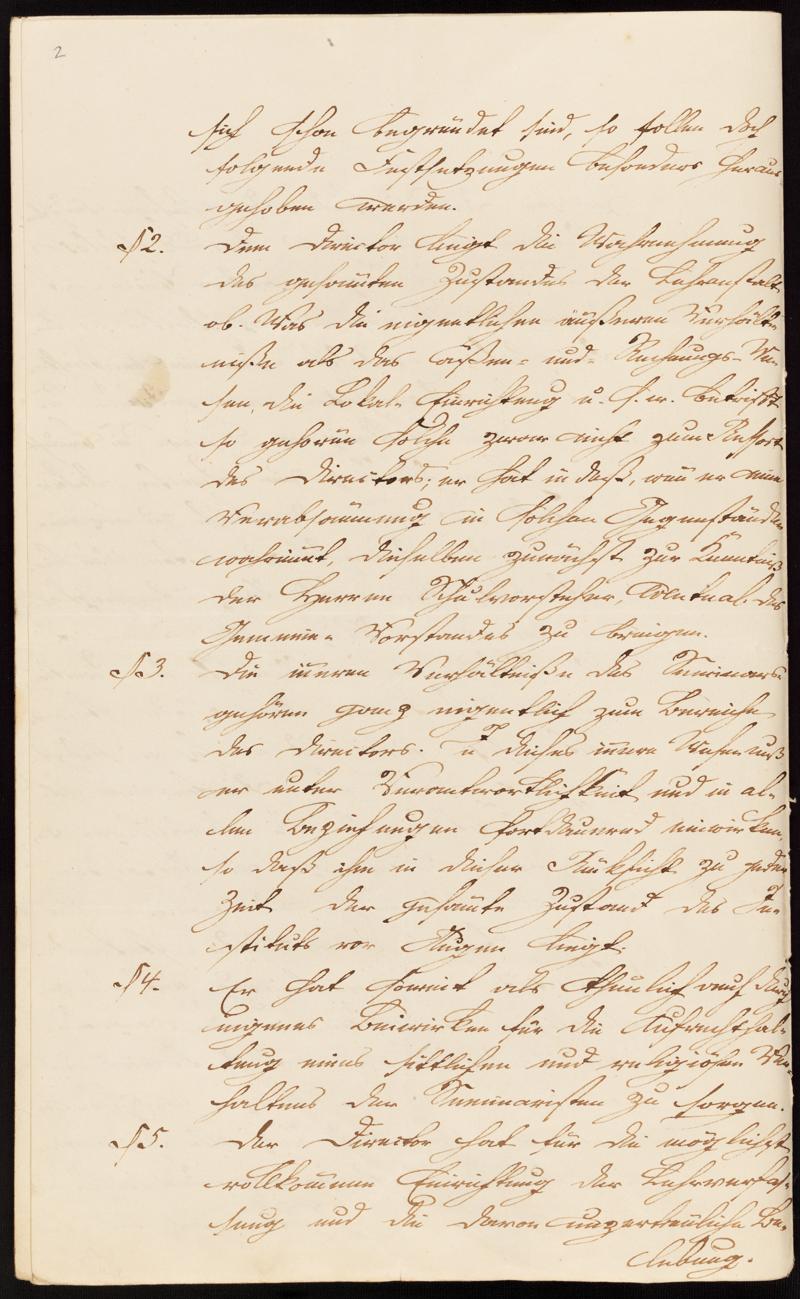 2
sich schon begründet sind, so sollen doch
folgende Festsetzungen besonders heraus
gehoben werden.
§2. Dem Director liegt die Wahrnehmung
des gesam̅ten Zustandes der Lehranstalt
ob. Was die eigentlichen äußeren Verhält-
niße als das Caßen- und Rechnungs-We-
sen, die Lokal-Einrichtung u. s. w. betrifft
so gehören solche zwar nicht zum Ressort
des Directors; er hat in deß, wen̅ er eine
Verabsäumung in solchen Gegenständen
wahrnim̅t, dieselben zunächst zur Kenntniß
der Herren Schulvorsteher, eventual. des
Gemeine-Vorstandes zu bringen.
§3. Die in̅eren Verhältniße des Seminars
gehören ganz eigentlich zum Bereiche
des Directors. In dieses in̅ere Wesen muß
er unter Verantwortlichkeit und in al-
len Beziehungen fortdauernd einwirken,
so daß ihm in dieser Rücksicht zu jeder
Zeit der gesam̅te Zustand des In-
stituts vor Augen liegt.
§4. Er hat soweit als thunlich auch durch
eigenes Beiwirken für die Aufrechthal-
tung eines sittlichen und religiösen Ver-
haltens der Seminaristen zu sorgen.
§5. Der Director hat für die möglichst
vollkom̅ene Einrichtung der Lehrverfas-
sung und die davon unzertrenliche Be-
lebung.